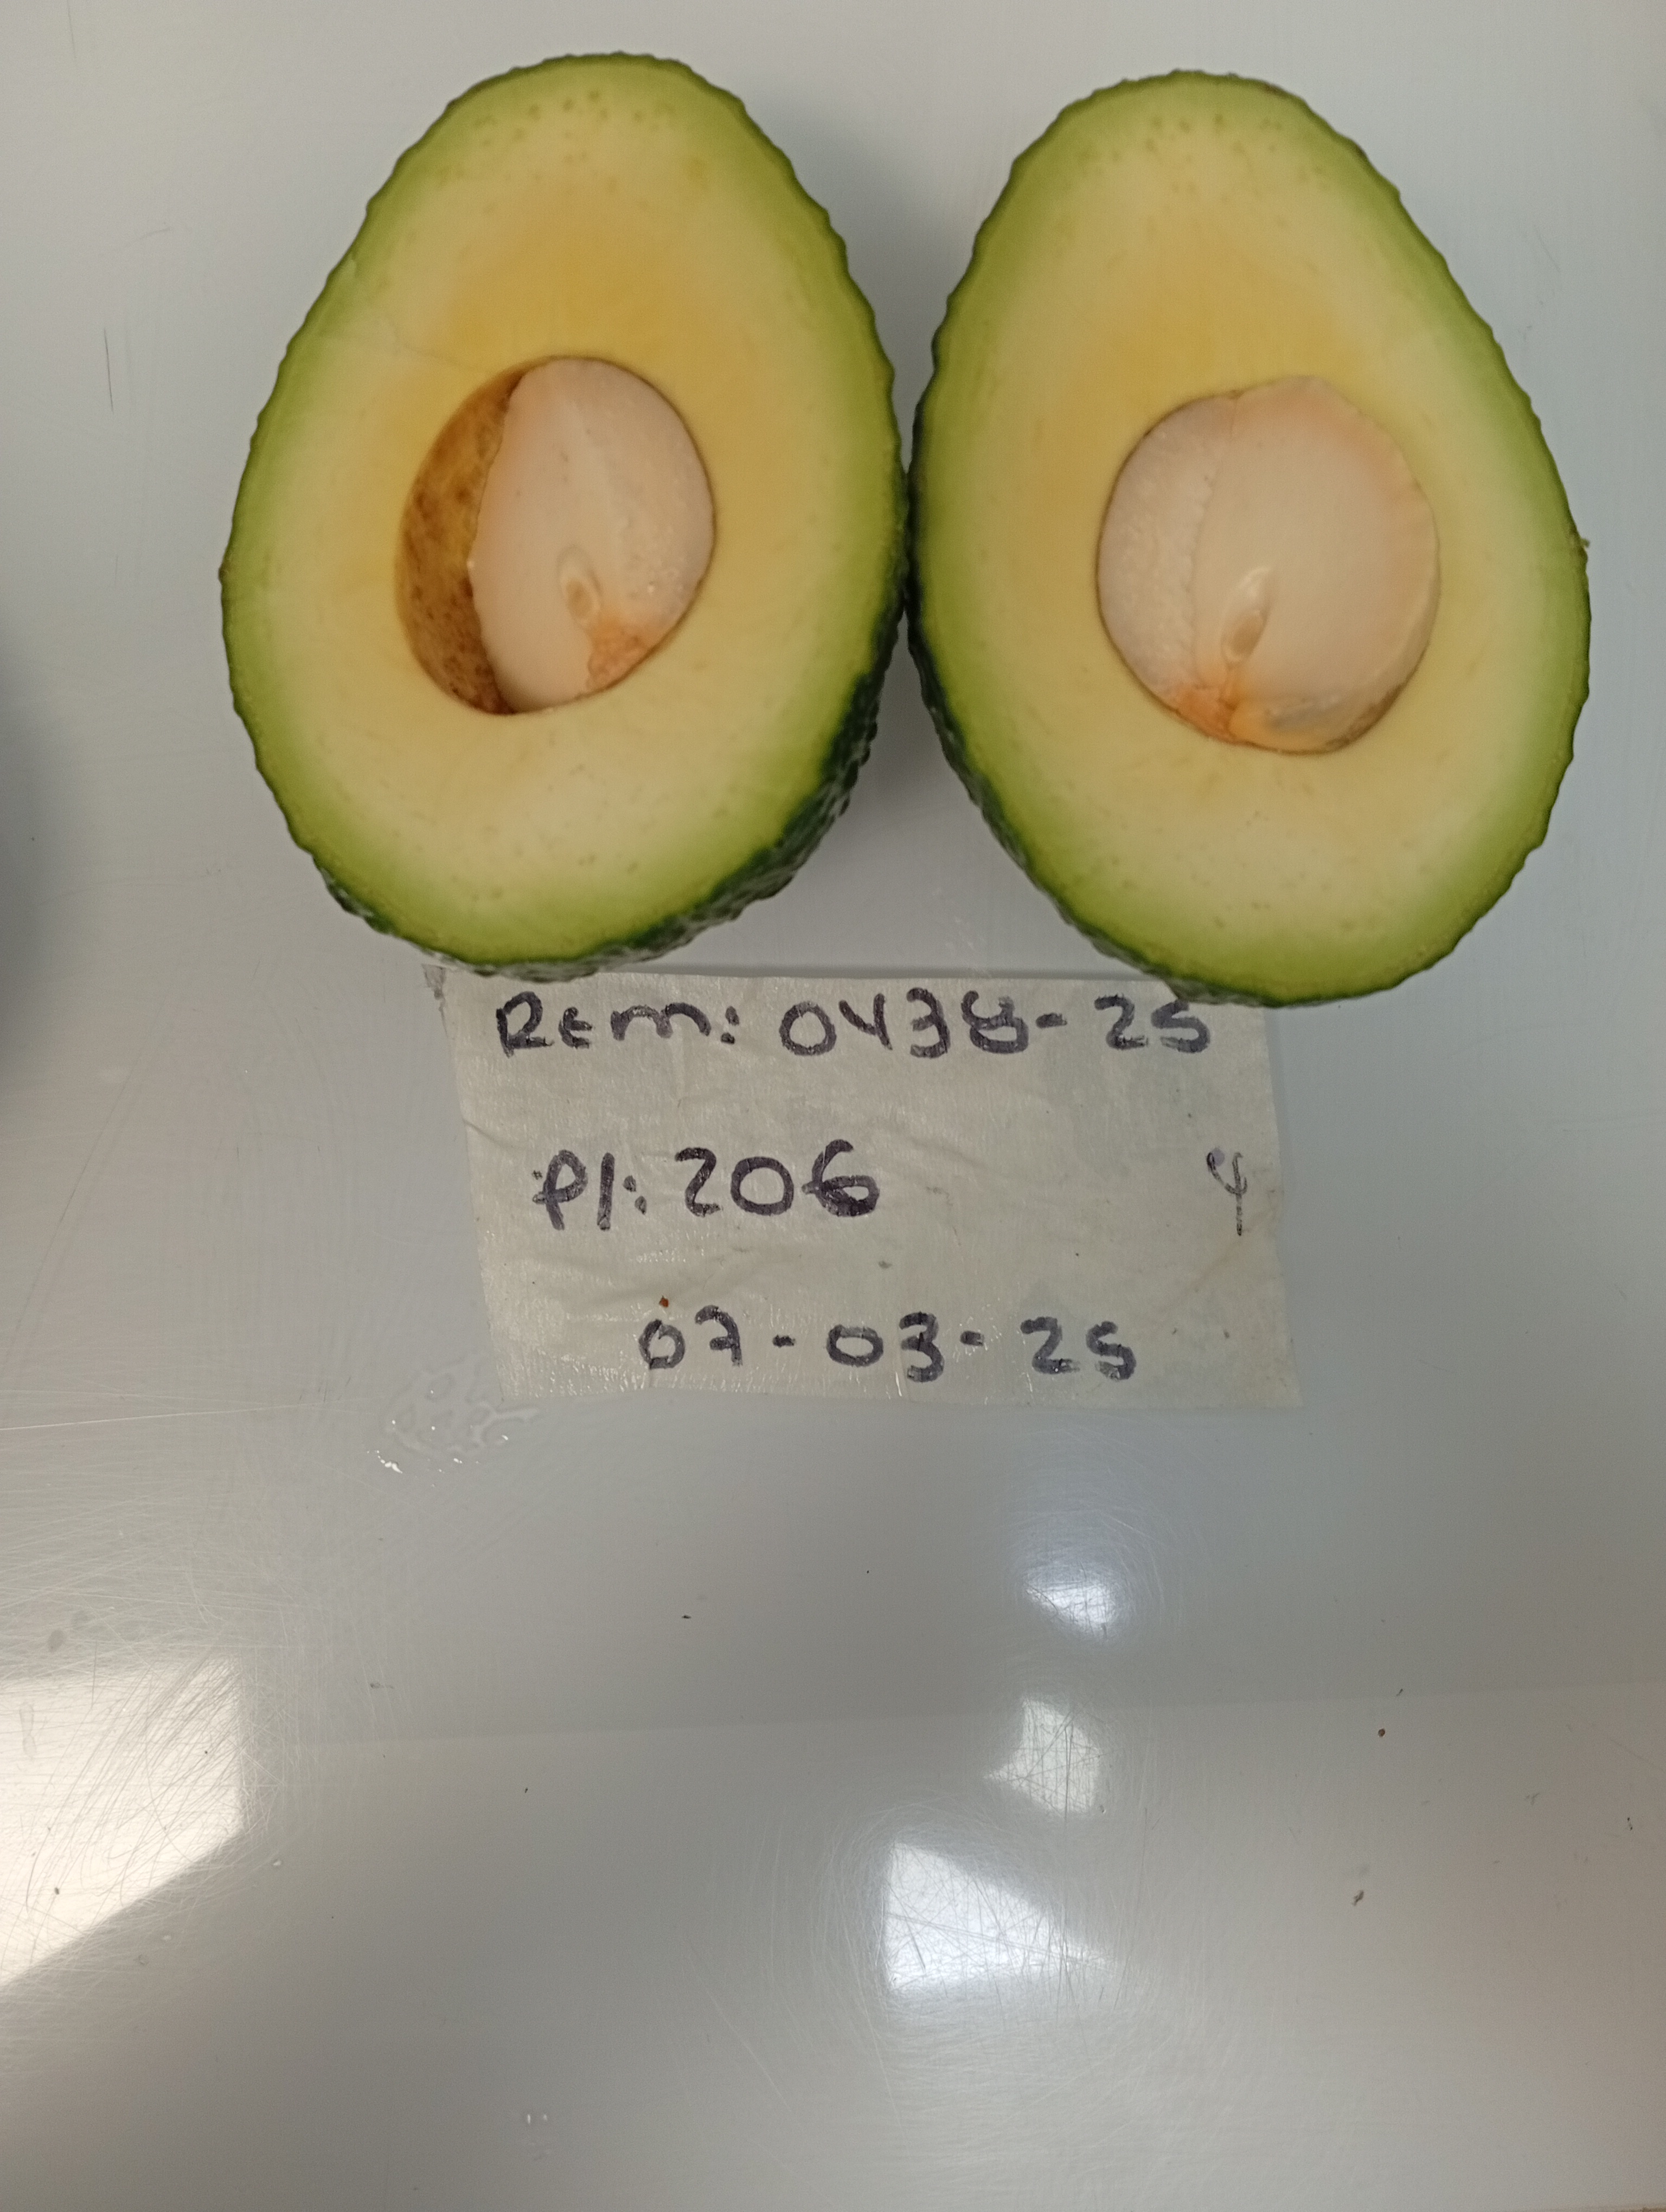 Rem: 0438-25
Pl: 206 4
07-03-25